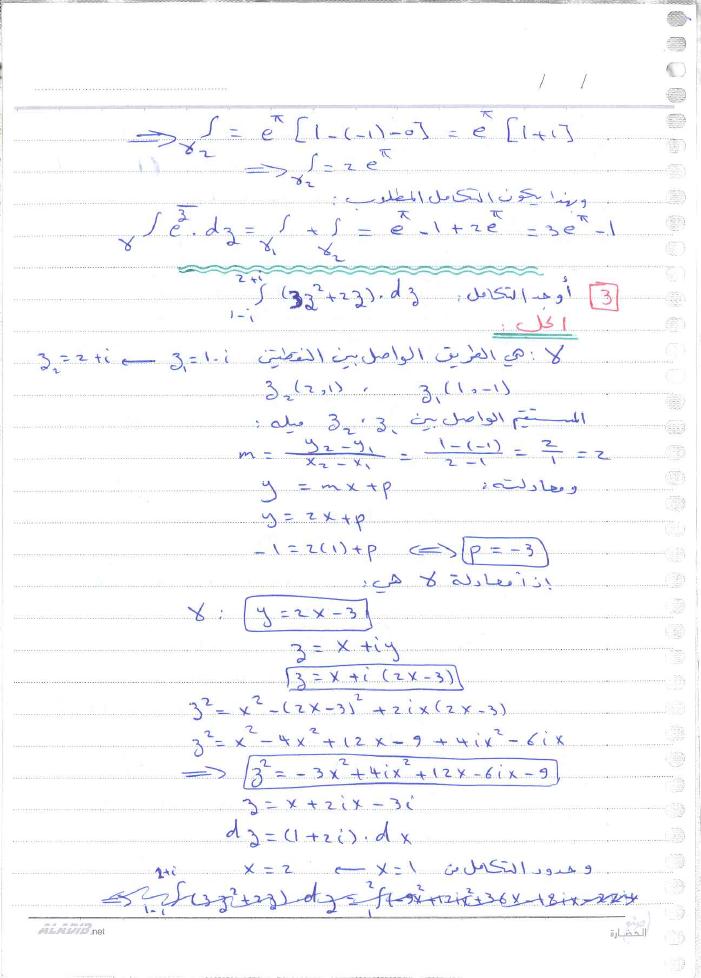 / /
⟹ ∫_γ₂ = e^π [1-(-1)-0] = e^π [1+1]
⟹ ∫_γ₂ = 2e^π
وبهذا يكون التكامل المطلوب:
γ∫ e^z̄ . dz = ∫_γ₁ + ∫_γ₂ = e^π - 1 + 2e^π = 3e^π - 1
3 أوجد التكامل: ∫_{1-i}^{2+i} (3z²+2z).dz
الحل:
γ: هي الطريق الواصل بين النقطتين z₁=1-i ← z₂=2+i
z₁(1,-1) , z₂(2,1)
المستقيم الواصل بين z₁ , z₂ ميله:
m = (y₂-y₁)/(x₂-x₁) = (1-(-1))/(2-1) = 2/1 = 2
ومعادلته: y = mx+p
y = 2x+p
-1 = 2(1)+p ⟺ p = -3
إذاً معادلة γ هي:
γ : y = 2x-3
z = x+iy
z = x+i(2x-3)
z² = x²-(2x-3)²+2ix(2x-3)
z² = x²-4x²+12x-9+4ix²-6ix
⟹ z² = -3x²+4ix²+12x-6ix-9
z = x+2ix-3i
dz = (1+2i).dx
وحدود التكامل من x=1 ← x=2
∫_{1-i}^{2+i} (3z²+2z) dz = ∫_1^2 (-9x²+12ix²+36x-18ix
ALADIB.net
الحضارة